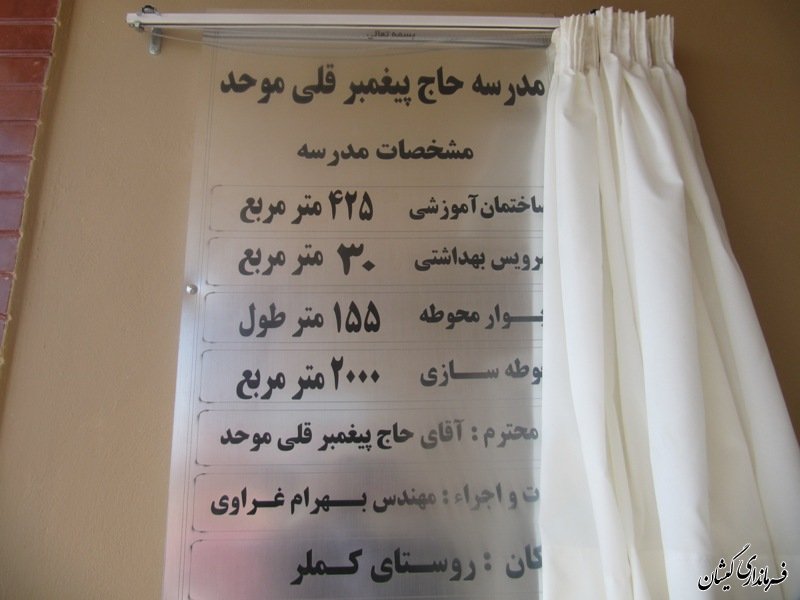 بسمه تعالی
مدرسه حاج پیغمبر قلی موحد
مشخصات مدرسه
ساختمان آموزشی ۴۲۵ متر مربع
رویس بهداشتی ۳۰ متر مربع
وار محوطه ۱۵۵ متر طول
وطه سازی ۲۰۰۰ متر مربع
محترم : آقای حاج پیغمبر قلی موحد
ت و اجراء : مهندس بهرام غراوی
کان : روستای کملر
فرمانداری گمیشان